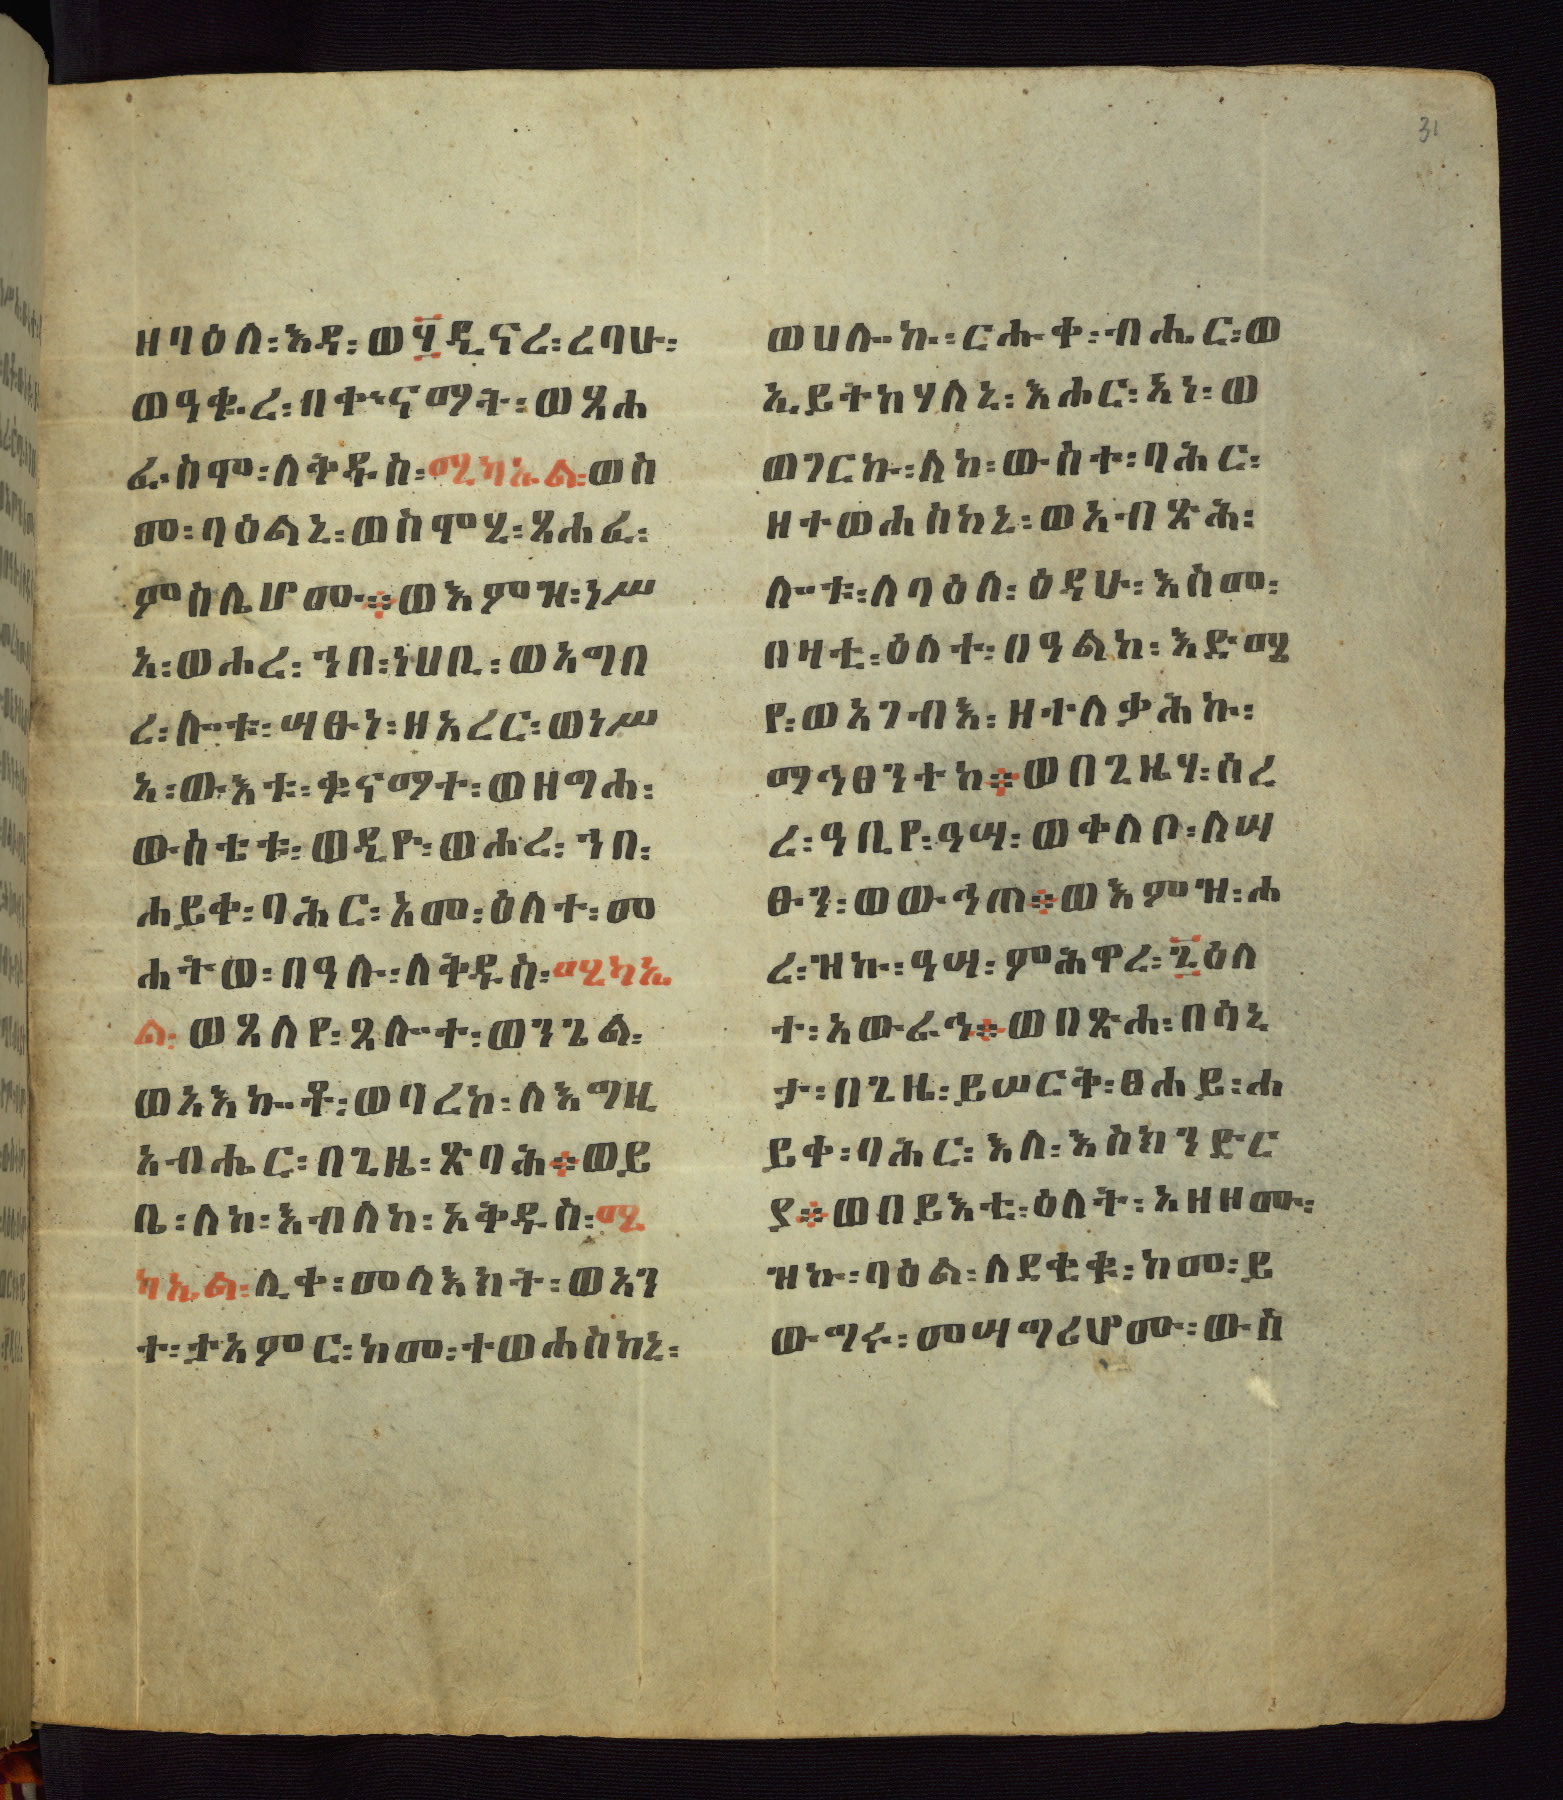 31
ዘባዕለ፡እዳ፡ወ፶ዲናረ፡ረባሁ፡
ወዓቁረ፡በቍናማት፡ወጸሐ
ፈ፡ስሞ፡ለቅዱስ፡ሚካኤል፡ወስ
መ፡ባዕልኒ፡ወስሞሂ፡ጸሐፈ፡
ምስሌሆሙ።ወእምዝ፡ነሥ
አ፡ወሐረ፡ኀበ፡ነሀቢ፡ወአግበ
ረ፡ሎቱ፡ሣፁነ፡ዘአረር፡ወነሥ
አ፡ውእቱ፡ቁናማተ፡ወዘግሐ፡
ውስቴቱ፡ወዲዮ፡ወሐረ፡ኀበ፡
ሐይቀ፡ባሕር፡አመ፡ዕለተ፡መ
ሐትው፡በዓሉ፡ለቅዱስ፡ሚካኤ
ል፡ወጸለየ፡ጸሎተ፡ወንጌል፡
ወአእኰቶ፡ወባረከ፡ለእግዚ
አብሔር፡በጊዜ፡ጽባሕ።ወይ
ቤ፡ለከ፡እብለከ፡አቅዱስ፡ሚ
ካኤል፡ሊቀ፡መላእክት፡ወአን
ተ፡ታአምር፡ከመ፡ተወሐስከኒ፡
ወሀሎኩ፡ርሑቀ፡ብሔር፡ወ
ኢይትከሃለኒ፡እሐር፡አነ፡ወ
ወገርኩ፡ለከ፡ውስተ፡ባሕር፡
ዘተወሐስከኒ፡ወአብጽሕ፡
ሎቱ፡ለባዕለ፡ዕዳሁ፡እስመ፡
በዛቲ፡ዕለተ፡በዓልከ፡እድሜ
የ፡ወአገብእ፡ዘተለቃሕኩ፡
ማኅፀንተከ።ወበጊዜሃ፡ሰረ
ረ፡ዓቢየ፡ዓሣ፡ወቀለቦ፡ለሣ
ፁን፡ወውኅጠ።ወእምዝ፡ሐ
ረ፡ዝኩ፡ዓሣ፡ምሕዋረ፡፪ዕለ
ተ፡አውራኅ።ወበጽሐ፡በሳኒ
ታ፡በጊዜ፡ይሠርቅ፡ፀሐይ፡ሐ
ይቀ፡ባሕር፡እለ፡እስክንድር
ያ።ወበይእቲ፡ዕለት፡አዘዞሙ፡
ዝኩ፡ባዕል፡ለደቂቁ፡ከመ፡ይ
ውግሩ፡መሣግሪሆሙ፡ውስ